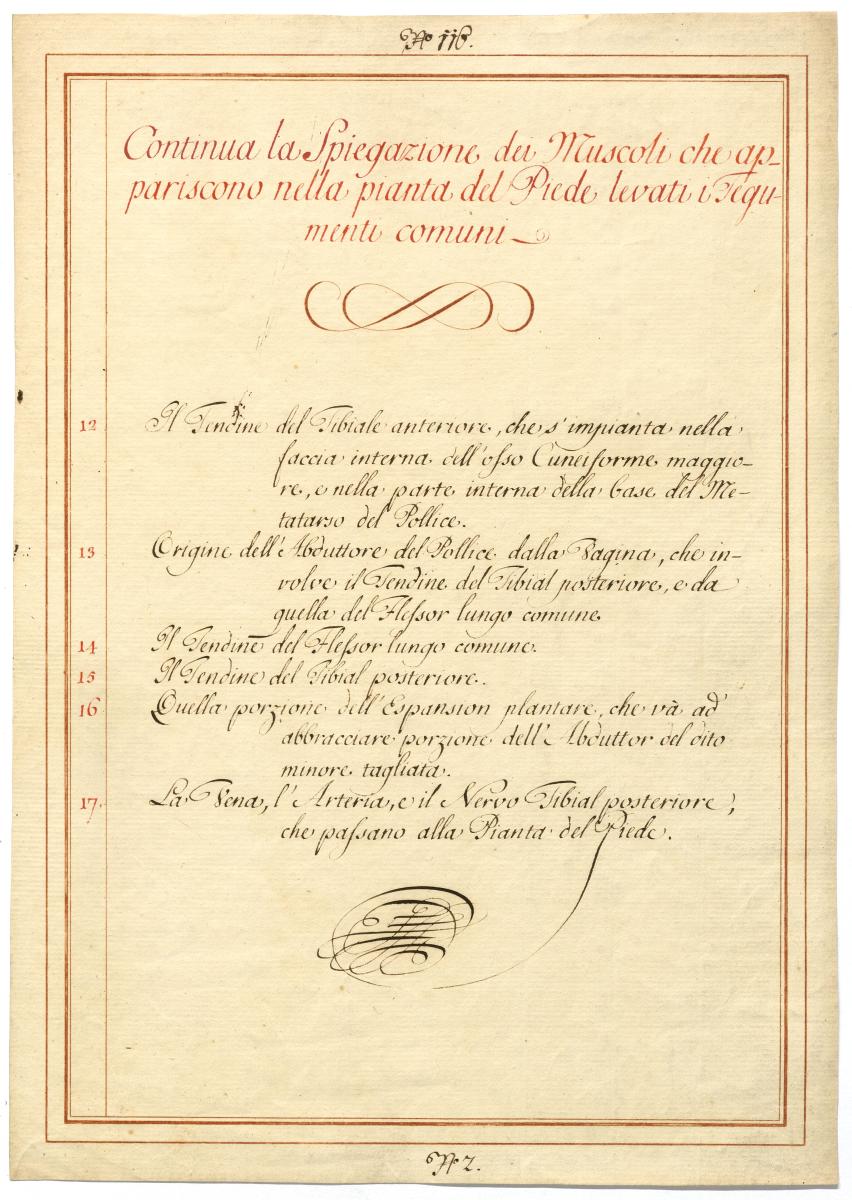 No 116.
Continua la Spiegazione dei Muscoli che ap-
pariscono nella pianta del Piede levati i Tegu-
menti comuni
12 Il Tendine del Tibiale anteriore, che s'impianta nella
faccia interna dell'osso Cuneiforme maggio-
re, e nella parte interna della base del Me-
tatarso del Pollice.
13 Origine dell'Abduttore del Pollice dalla Vagina, che in-
volve il Tendine del Tibial posteriore, e da
quella del Flessor lungo comune
14 Il Tendine del Flessor lungo comune.
15 Il Tendine del Tibial posteriore.
16 Quella porzione dell'Espansion plantare, che và ad
abbracciare porzione dell'Abduttor del dito
minore tagliata.
17. La Vena, l'Arteria, e il Nervo Tibial posteriore,
che passano alla Pianta del Piede.
No 2.